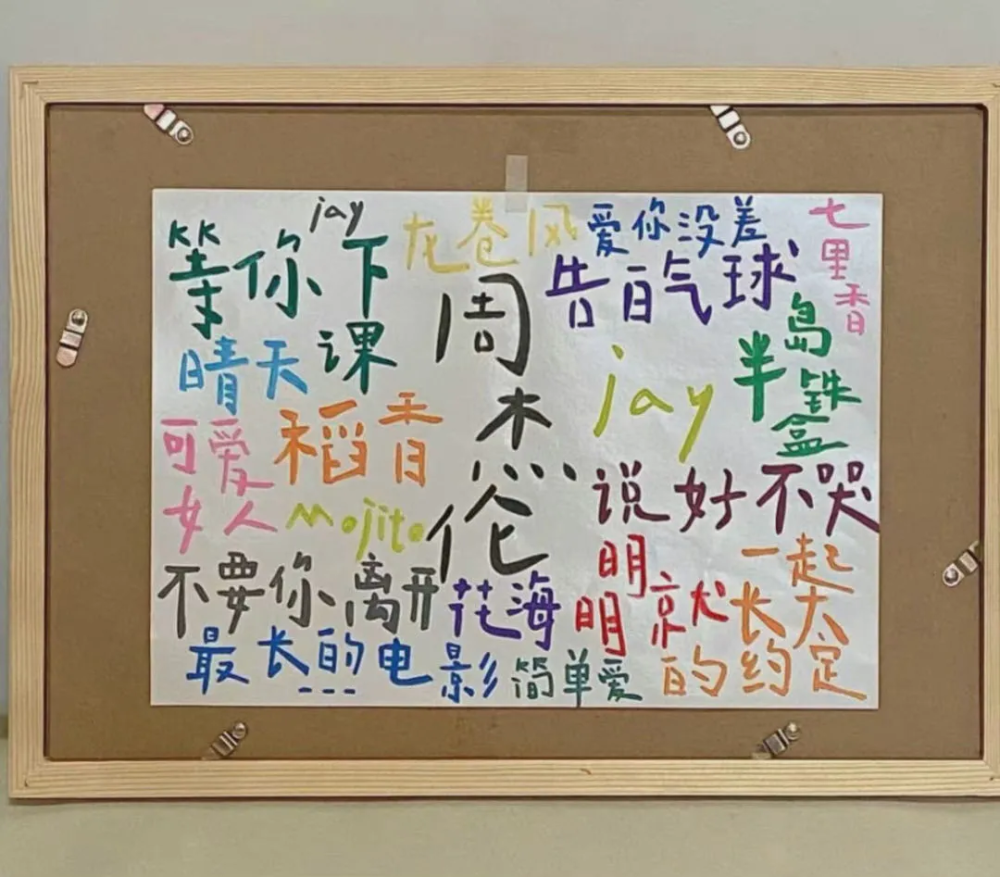 jay
等你下
课
龙卷风
爱你没差
七里香
告白气球
周杰伦
晴天
jay
半岛
铁盒
可爱
女人
稻香
mojito
说好不哭
不要你离开
花海
明明
就
一起
长大
的约定
最长的电影
简单爱